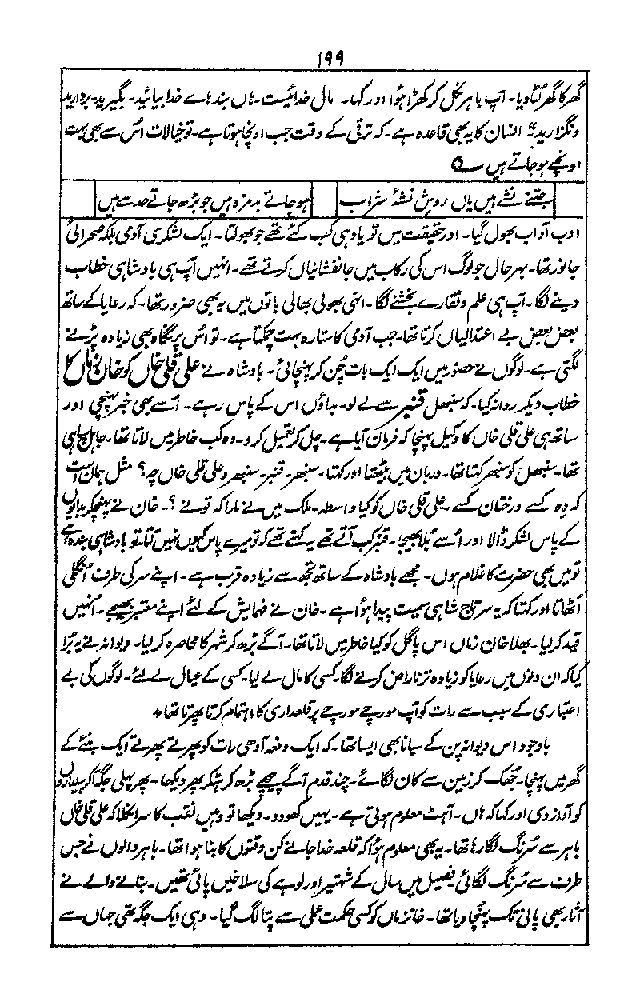 ۱۹۹
گھر کا گھر لٹا دیا۔ آپ باہر نکل کر کھڑا ہوا اور کہا۔ مال خدائیست۔ ہاں بندہاے خدا بیائید۔ بگیرید۔ بردارید
ونگزارید۔ انسان کا یہ بھی قاعدہ ہے۔ کہ ترقی کے وقت جب اونچا ہوتا ہے۔ تو خیالات اُس سے بھی بہت
اونچے ہو جاتے ہیں
جتنے نشے ہیں یاں روش نشۂ شراب ہو جاتے بدمزہ ہیں جو بڑھ جاتے حد سے ہیں
ادب آداب بھول گیا۔ اور حقیقت میں تو یاد ہی کب کئے تھے جو بھولتا۔ ایک لشکری آدمی بلکہ صحرائی
جانور تھا۔ بہرحال جو لوگ اس کی رکاب میں جانفشانیاں کرتے تھے۔ انہیں آپ ہی بادشاہی خطاب
دینے لگا۔ آپ ہی علم و نقارے بخشنے لگا۔ اتنی بھولی بھالی باتوں میں یہ بھی ضرور تھا۔ کہ رعایا کے ساتھ
بعض بعض بے اعتدالیاں کرتا تھا۔ جب آدمی کا ستارہ بہت چمکتا ہے۔ تو اُس پر نگاہ بھی زیادہ پڑنے
لگتی ہے۔ لوگوں نے حضور میں ایک ایک بات چُن کر پہنچائی۔ بادشاہ نے علی قلی خاں کو خان زماں کا
خطاب دیکر روانہ کیا۔ کہ سنبھل قنبر سے لے لو۔ بداؤں اس کے پاس رہے۔ اُسے بھی خبر پہنچی اور
ساتھ ہی علی قلی خاں کا وکیل پہنچا کہ فرمان آیا ہے۔ چل کر تعمیل کرو۔ وہ کب خاطر میں لاتا تھا۔ جاہل سپاہی
تھا۔ سنبھل کو سنبھر کہتا تھا۔ دربار میں بیٹھتا اور کہتا۔ سنبھر و قنبر۔ سنبھر و علی قلی خاں چہ؟ مثل ہماں است
کہ دہ کسے درختان کسے۔ علی قلی خاں کو کیا واسطہ۔ ملک میں نے مارا کہ تو نے؟۔ خان نے پہنچکر بداؤں
کے پاس لشکر ڈالا اور اُسے بُلا بھیجا۔ قنبر کب آتے تھے۔ کہتے تھے کہ تو میرے پاس کیوں نہیں آتا۔ تو بادشاہی بندہ ہے
تو میں بھی حضرت کا غلام ہوں۔ مجھے بادشاہ کے ساتھ تجھ سے زیادہ قرب ہے۔ اپنے سر کی طرف اُنگلی
اُٹھاتا اور کہتا کہ یہ سر تاج شاہی سمیت پیدا ہوا ہے۔ خان نے فہمایش کے لئے اپنے معتبر بھیجے۔ اُنہیں
قید کر لیا۔ بھلا خان زماں اس پاگل کو کیا خاطر میں لاتا تھا۔ آگے بڑھ کر شہر کا محاصرہ کر لیا۔ دیوانہ نے یہ بڑا
کیا کہ ان دنوں میں رعایا کو زیادہ تر ناراض کرنے لگا۔ کسی کا مال لے لیا۔ کسی کے عیال لے لئے۔ لوگوں کی بے
اعتباری کے سبب سے رات کو آپ مورچے مورچے پر قلعداری کا اہتمام کرتا پھرتا تھا ٭
باوجود اس دیوانہ پن کے سیانا بھی ایسا تھا۔ کہ ایک دفعہ آدھی رات کو پھرتے پھرتے ایک بنئے کے
گھر میں پہنچا۔ جھک کر زمین سے کان لگائے۔ چند قدم آگے پیچھے بڑھ کر ہٹ کر پھر دیکھا۔ پھر پہلی جگہ آکر بیلداروں
کو آواز دی اور کہا کہ ہاں۔ آہٹ معلوم ہوتی ہے۔ یہیں کھودو۔ دیکھا تو وہیں نقب کا سرا نکلا کہ علی قلی خاں
باہر سے سُرنگ لگا رہا تھا۔ یہ بھی معلوم ہوا کہ قلعہ خدا جانے کن وقتوں کا بنا ہوا تھا۔ باہر والوں نے جس
طرف سے سُرنگ لگائی فصیل میں سال کے شہتیر اور لوہے کی سلاخیں پائی تھیں۔ بنانے والے نے
آثار بھی پانی تک پہنچا دیا تھا۔ خانزماں کو کسی حکمت عملی سے پتا لگ گیا۔ وہی ایک جگہ تھی جہاں سے